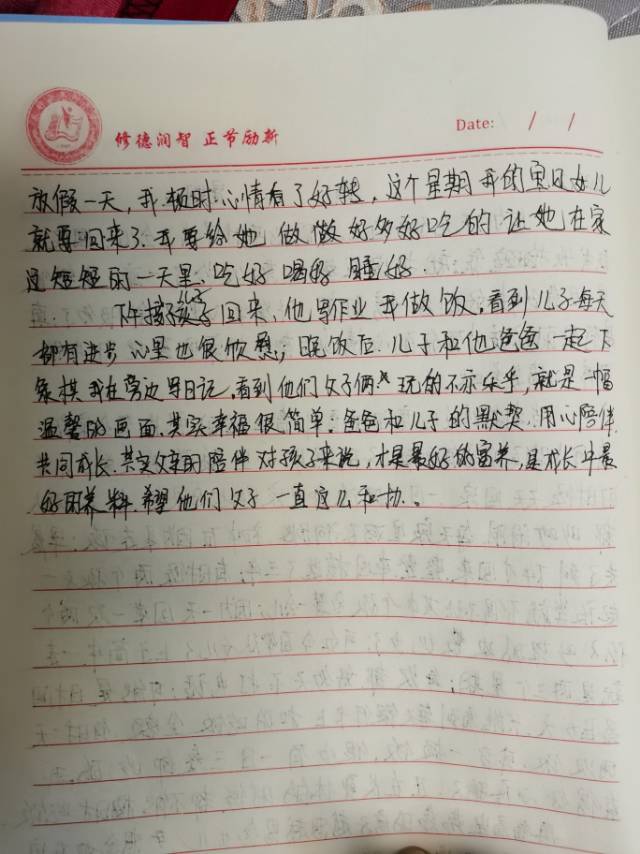 修德润智 正节励新
Date: / /
放假一天，我顿时心情有了好转，这个星期我的宝贝女儿
就要回来了.我要给她做做好多好吃的让她在家
这短短的一天里、吃好喝好睡好.
下午接孩子儿子回来、他写作业我做饭，看到儿子每天
都有进步心里也很欣慰，晚饭后.儿子和他爸爸一起下
象棋.我在旁边写日记，看到他们父子俩玩的不亦乐乎，就是一幅
温馨的画面.其实幸福很简单.爸爸和儿子的默契.用心陪伴
共同成长.其实父亲的陪伴对孩子来说，才是最好的富养，是成长中最
好的养料.希望他们父子一直这么和协。